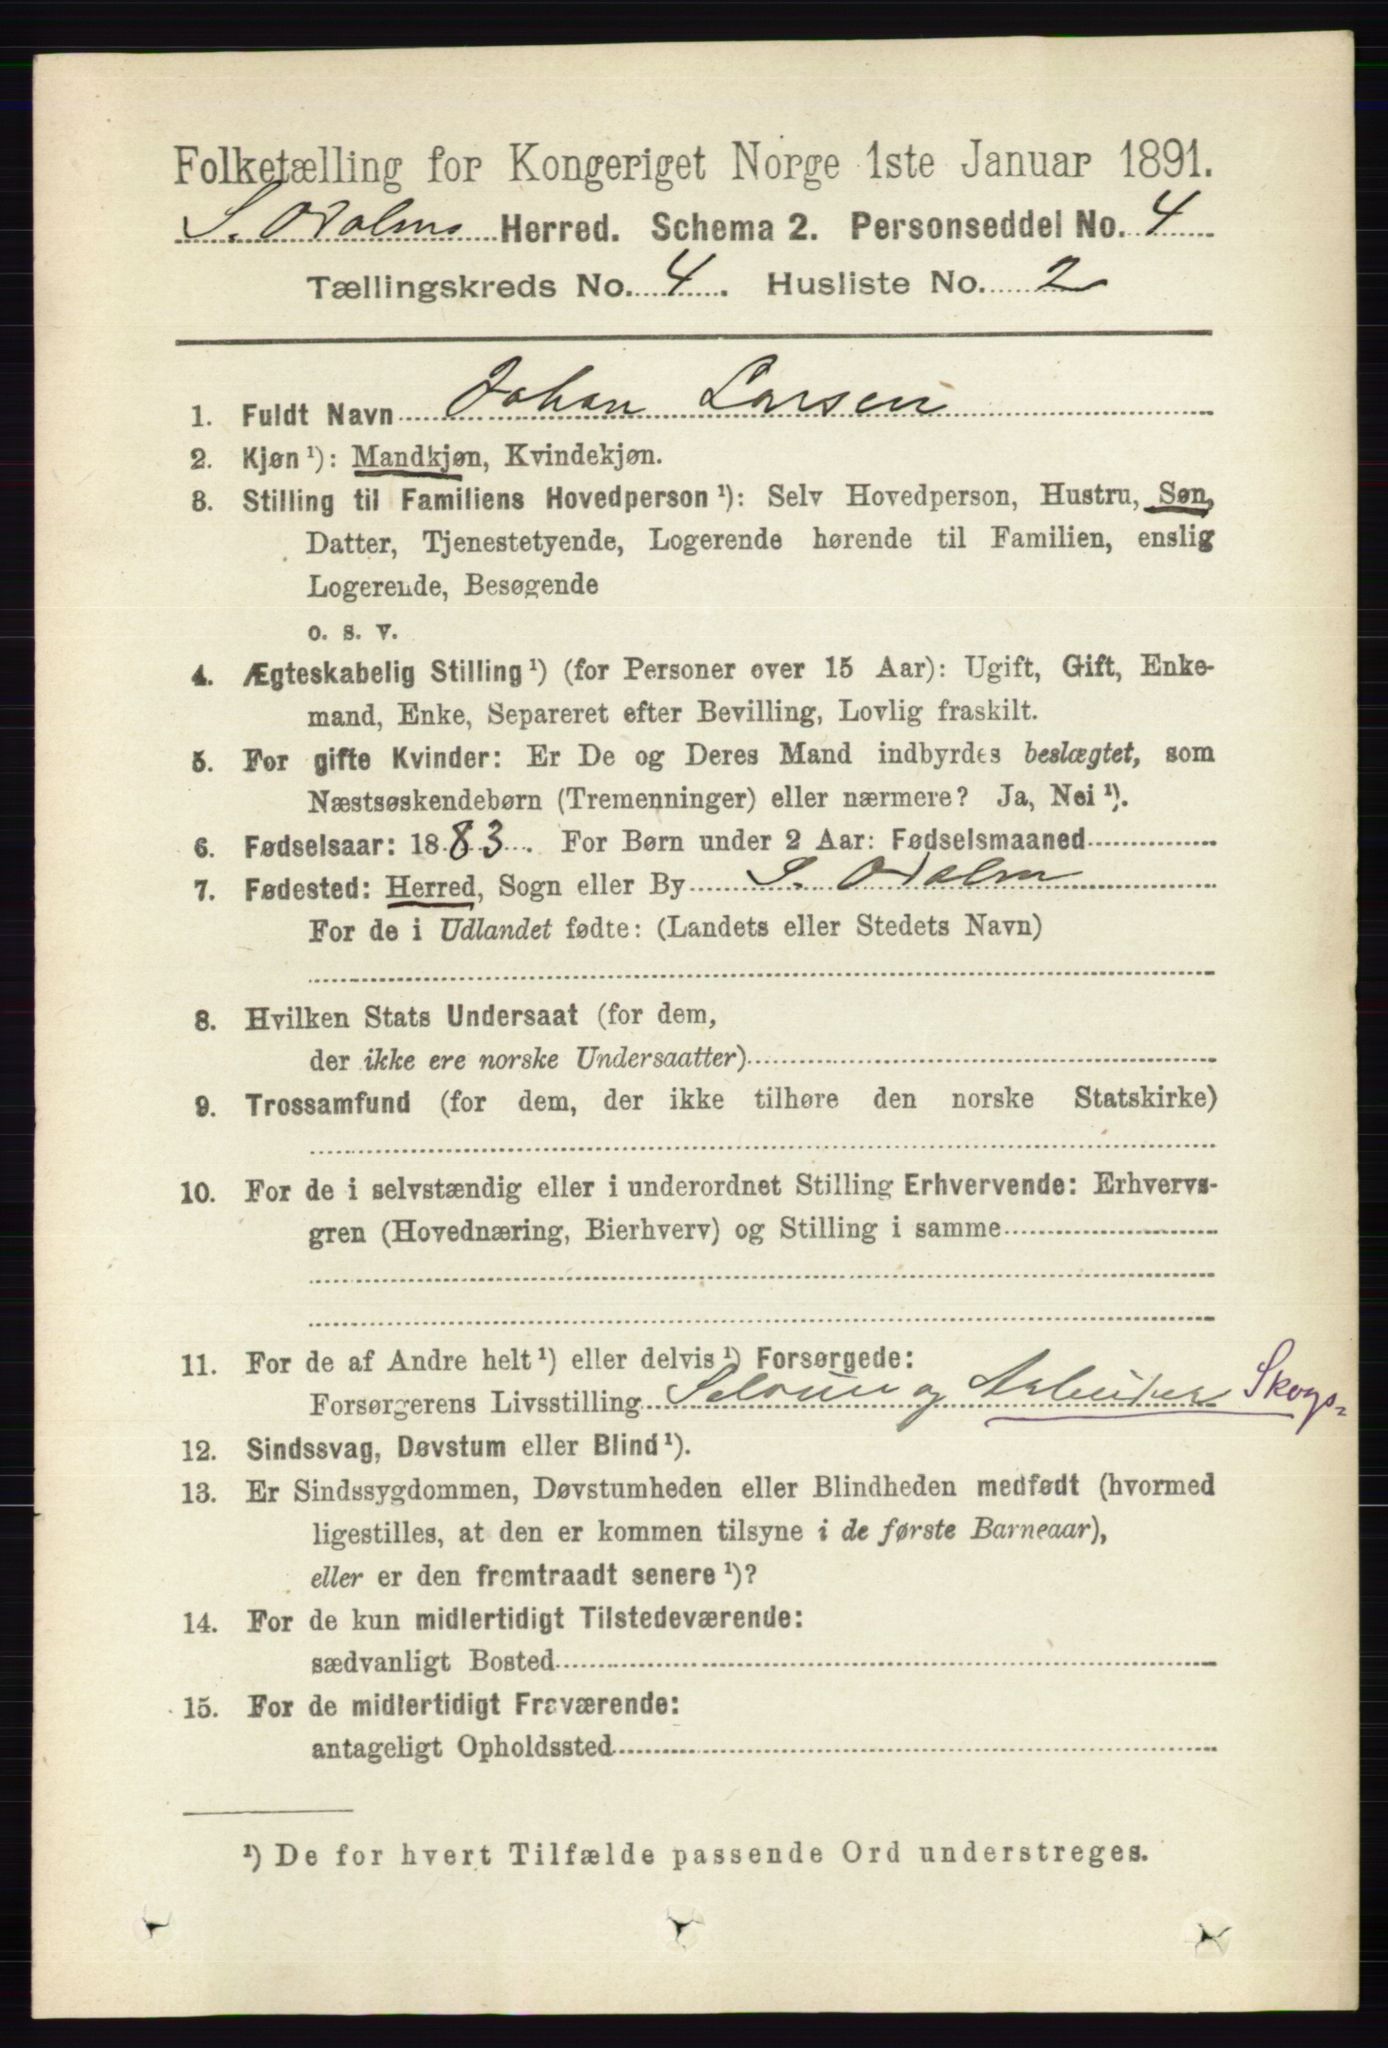 Folketælling for Kongeriget Norge 1ste Januar 1891.
S. Odalms Herred. Schema 2. Personseddel No. 4
Tællingskreds No. 4. Husliste No. 2
1. Fuldt Navn Johan Larsen
2. Kjøn ¹): Mandkjøn, Kvindekjøn.
3. Stilling til Familiens Hovedperson ¹): Selv Hovedperson, Hustru, Søn,
Datter, Tjenestetyende, Logerende hørende til Familien, enslig
Logerende, Besøgende
o. s. v.
4. Ægteskabelig Stilling ¹) (for Personer over 15 Aar): Ugift, Gift, Enke-
mand, Enke, Separeret efter Bevilling, Lovlig fraskilt.
5. For gifte Kvinder: Er De og Deres Mand indbyrdes beslægtet, som
Næstsøskendebørn (Tremenninger) eller nærmere? Ja, Nei ¹).
6. Fødselsaar: 1883. For Børn under 2 Aar: Fødselsmaaned
7. Fødested: Herred, Sogn eller By S. Odalm
For de i Udlandet fødte: (Landets eller Stedets Navn)
8. Hvilken Stats Undersaat (for dem,
der ikke ere norske Undersaatter)
9. Trossamfund (for dem, der ikke tilhøre den norske Statskirke)
10. For de i selvstændig eller i underordnet Stilling Erhvervende: Erhvervs-
gren (Hovednæring, Bierhverv) og Stilling i samme
11. For de af Andre helt ¹) eller delvis ¹) Forsørgede:
Forsørgerens Livsstilling Seloeier og Arbeider Skogs-
12. Sindssvag, Døvstum eller Blind ¹).
13. Er Sindssygdommen, Døvstumheden eller Blindheden medfødt (hvormed
ligestilles, at den er kommen tilsyne i de første Barneaar),
eller er den fremtraadt senere ¹)?
14. For de kun midlertidigt Tilstedeværende:
sædvanligt Bosted
15. For de midlertidigt Fraværende:
antageligt Opholdssted
¹) De for hvert Tilfælde passende Ord understreges.